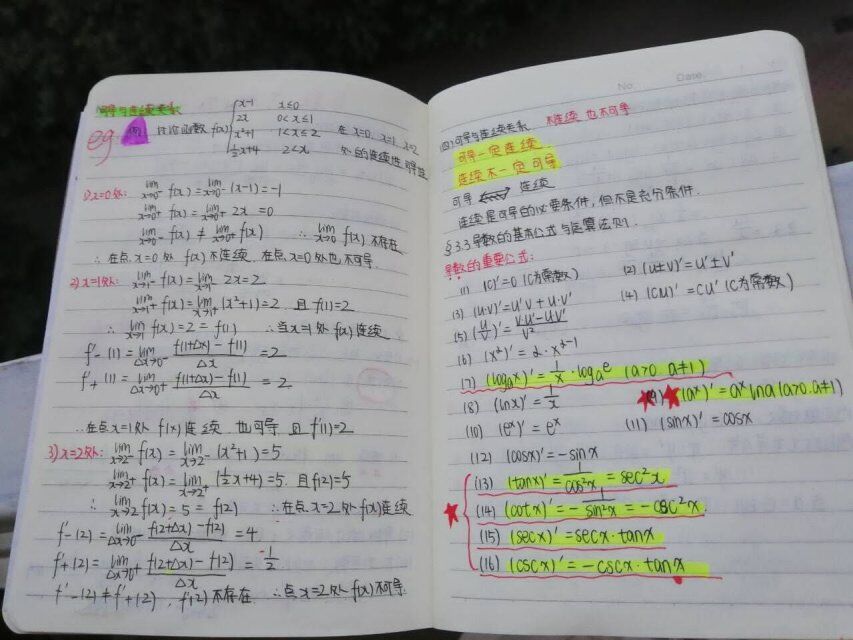 可导与连续关系
eg 例1 讨论函数 f(x) { x-1 x≤0
2x 0<x≤1
x²+1 1<x≤2 在 x=0, x=1, x=2
½x+4 2<x 处的连续性 可导性
1) x=0处: lim x→0⁻ f(x) = lim x→0⁻ (x-1) = -1
lim x→0⁺ f(x) = lim x→0⁺ 2x = 0
lim x→0⁻ f(x) ≠ lim x→0⁺ f(x) ∴ lim x→0 f(x) 不存在
∴ 在点 x=0 处 f(x) 不连续, 在点 x=0 处也不可导.
2) x=1处: lim x→1⁻ f(x) = lim x→1⁻ 2x = 2
lim x→1⁺ f(x) = lim x→1⁺ (x²+1) = 2 且 f(1)=2
∴ lim x→1 f(x) = 2 = f(1) ∴ 当 x=1 处 f(x) 连续
f'-(1) = lim Δx→0⁻ f(1+Δx)-f(1) / Δx = 2
f'+(1) = lim Δx→0⁺ f(1+Δx)-f(1) / Δx = 2
∴ 在点 x=1处 f(x) 连续 也可导 且 f'(1)=2
3) x=2处: lim x→2⁻ f(x) = lim x→2⁻ (x²+1) = 5
lim x→2⁺ f(x) = lim x→2⁺ (½x+4) = 5. 且 f(2)=5
∴ lim x→2 f(x) = 5 = f(2) ∴ 在点 x=2 处 f(x) 连续
f'-(2) = lim Δx→0⁻ f(2+Δx)-f(2) / Δx = 4
f'+(2) = lim Δx→0⁺ f(2+Δx)-f(2) / Δx = ½
f'-(2) ≠ f'+(2), f'(2) 不存在 ∴ 点 x=2 处 f(x) 不可导.
No. Date.
(四) 可导与连续关系 不连续 也不可导
可导一定连续
连续不一定可导
可导 连续
连续是可导的必要条件, 但不是充分条件.
§3.3 导数的基本公式与运算法则.
导数的重要公式:
(1) (C)'=0 (C为常数) (2) (u±v)'=u'±v'
(3) (u·v)'=u'v+u·v' (4) (Cu)'=Cu' (C为常数)
(5) (u/v)' = v·u'-uv' / v²
(6) (x^α)'=α·x^(α-1)
(7) (logₐx)'=1/x·logₐe (a>0 a≠1)
(8) (lnx)'=1/x (9) (aˣ)'=aˣlna (a>0.a≠1)
(10) (eˣ)'=eˣ (11) (sinx)'=cosx
(12) (cosx)'=-sinx
(13) (tanx)'=1/cos²x=sec²x
(14) (cotx)'=-1/sin²x=-csc²x
(15) (secx)'=secx·tanx
(16) (cscx)'=-cscx·tanx